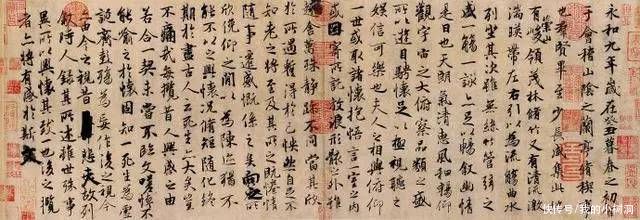 永和九年歲在癸丑暮春之初會
于會稽山陰之蘭亭脩稧事
也群賢畢至少長咸集此地
有崇山峻領茂林脩竹又有清流激
湍暎帶左右引以為流觴曲水
列坐其次雖無絲竹管弦之
盛一觴一詠亦足以暢敘幽情
是日也天朗氣清惠風和暢仰
觀宇宙之大俯察品類之盛
所以遊目騁懷足以極視聽之
娛信可樂也夫人之相與俯仰
一世或取諸懷抱悟言一室之內
或因寄所託放浪形骸之外雖
趣舍萬殊靜躁不同當其欣
於所遇蹔得於己怏然自足不
知老之將至及其所之既惓情
隨事遷感慨係之矣向之所
欣俛仰之閒以為陳迹猶不
能不以之興懷況脩短隨化終
期於盡古人云死生亦大矣豈
不痛哉每攬昔人興感之由
若合一契未嘗不臨文嗟悼不
能喻之於懷固知一死生為虛
誕齊彭殤為妄作後之視今
亦由今之視昔悲夫故列
敘時人錄其所述雖世殊事
異所以興懷其致一也後之攬
者亦將有感於斯文
快传号/我的小树洞